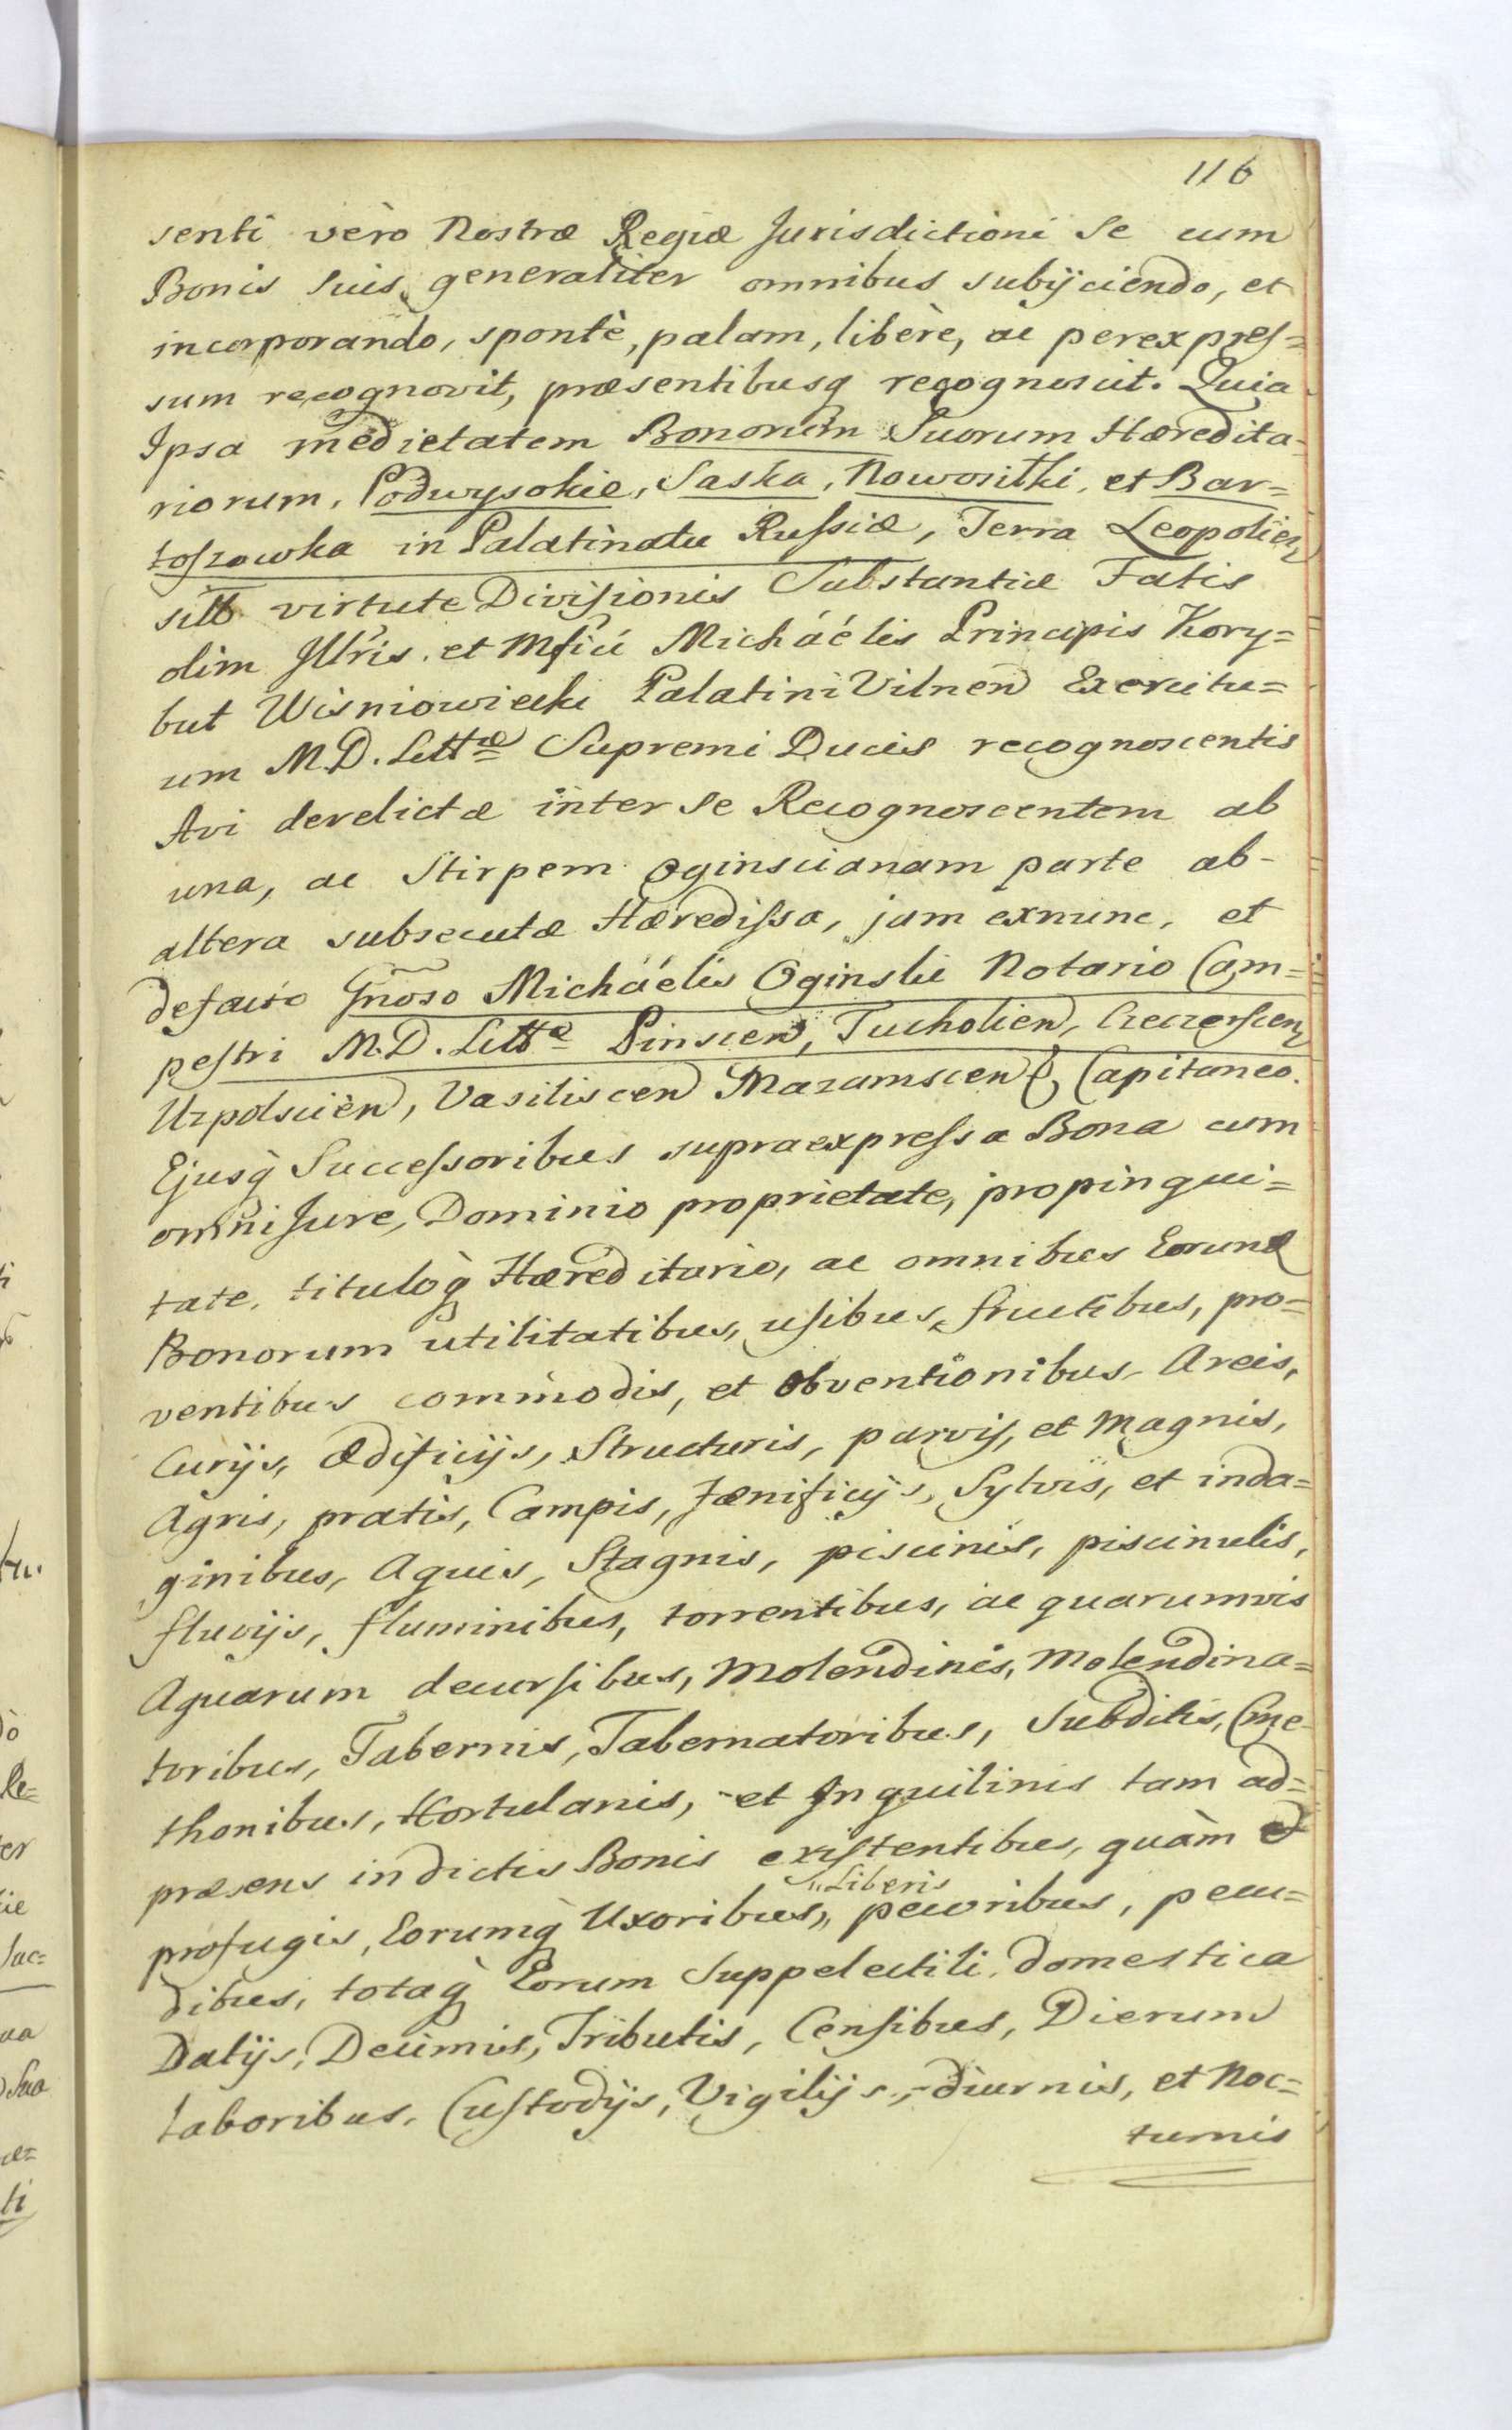 116
senti verò Nostræ Regiæ Jurisdictioni Se cum
Bonis Suis generaliter omnibus subijciendo, et
incorporando, spontè, palam, liberè, ac per expres=
sum recognovit, præsentibusq recognoscit. Quia
Ipsa medietatem Bonorum Suorum Hæredita=
riorum, Podwysokie, Saska, Nowosiłki, et Bar=
toszowka in Palatinatu Russiæ, Terra Leopolien
sitt virtute Divisionis Substantiæ Fatis
olim Jllris. et Mfici Michaélis Principis Kory=
but Wisniowiecki Palatini Vilnen Exercitu=
um M.D. Littæ Supremi Ducis recognoscentis
Avi derelictæ inter se Recognoscentem ab
una, ac Stirpem Oginscianam parte ab-
altera subsecutæ Hæredissa, jam exnunc, et
defacto Gnoso Michaélis Oginski Notario Cam=
pestri M.D. Littæ Pinscen, Tucholien, Czeczerscen
Uzpolscien, Vasiliscen Mazamscen Capitaneo.
Ejusq̀ Successoribus supraexpressa Bona cum
omni Jure, Dominio proprietate, propinqui=
tate, tituloq̀ Hæreditario, ac omnibus Eorund
Bonorum utilitatibus, usibus, fructibus, pro=
ventibus commodis, et obventionibus, Areis,
Curijs, Ædificijs, Structuris, parvis, et Magnis,
Agris, pratis, Campis, fænificijs, Sylvis, et inda=
ginibus, Aquis, Stagnis, piscinis, piscinulis,
fluvijs, fluminibus, torrentibus, ac quarumvis
Aquarum decursibus, Molendinis, Molendina=
toribus, Tabernis, Tabernatoribus, Subditis, Cme-
thonibus, Hortulanis, et Inquilinis tam ad=
præsens in dictis Bonis existentibus, quàm
profugis, Eorumq̀ Uxoribus,, pecoribus, pecu=
"Liberis
dibus, totaq̀ Eorum Suppelectili domestica
Datijs, Decimis, Tributis, Censibus, Dierum
laboribus, Custodijs, Vigilijs, diurnis, et Noc=
turnis